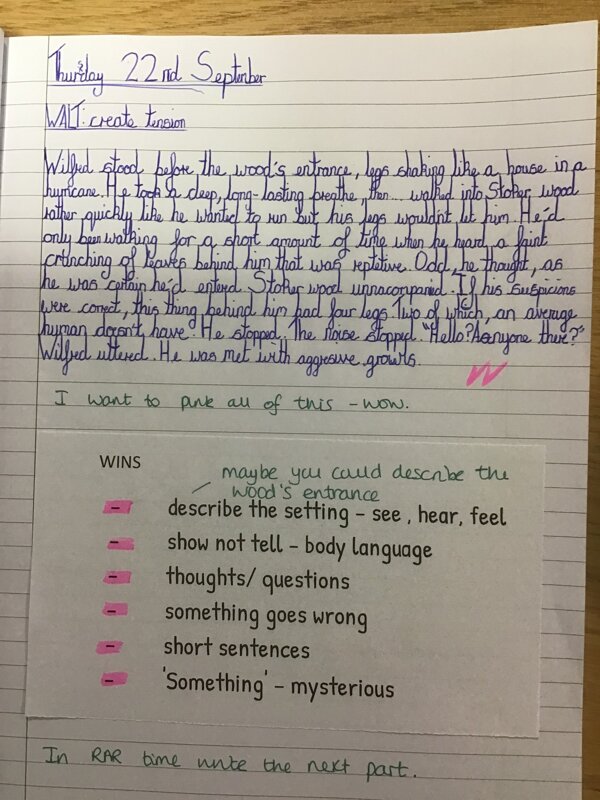 Thursday 22nd September
WALT: create tension
Wilfred stood before the wood's entrance, legs shaking like a house in a
hurricane. He took a deep, long-lasting breathe, then... walked into Stoker wood
rather quickly like he wanted to run but his legs wouldn't let him. He'd
only been walking for a short amount of time when he heard a faint
crunching of leaves behind him that was repetitive. Odd, he thought, as
he was certain he'd entered Stoker wood unnacompanied. If his suspicions
were correct, this thing behind him had four legs. Two of which, an average
human doesn't have. He stopped. The noise stopped. "Hello? Is anyone there?"
Wilfred uttered. He was met with aggresive growls.
W
I want to pink all of this - wow.
WINS
maybe you could describe the
wood's entrance
- describe the setting – see , hear, feel
- show not tell – body language
- thoughts/ questions
- something goes wrong
- short sentences
- 'Something' – mysterious
In RAR time write the next part.